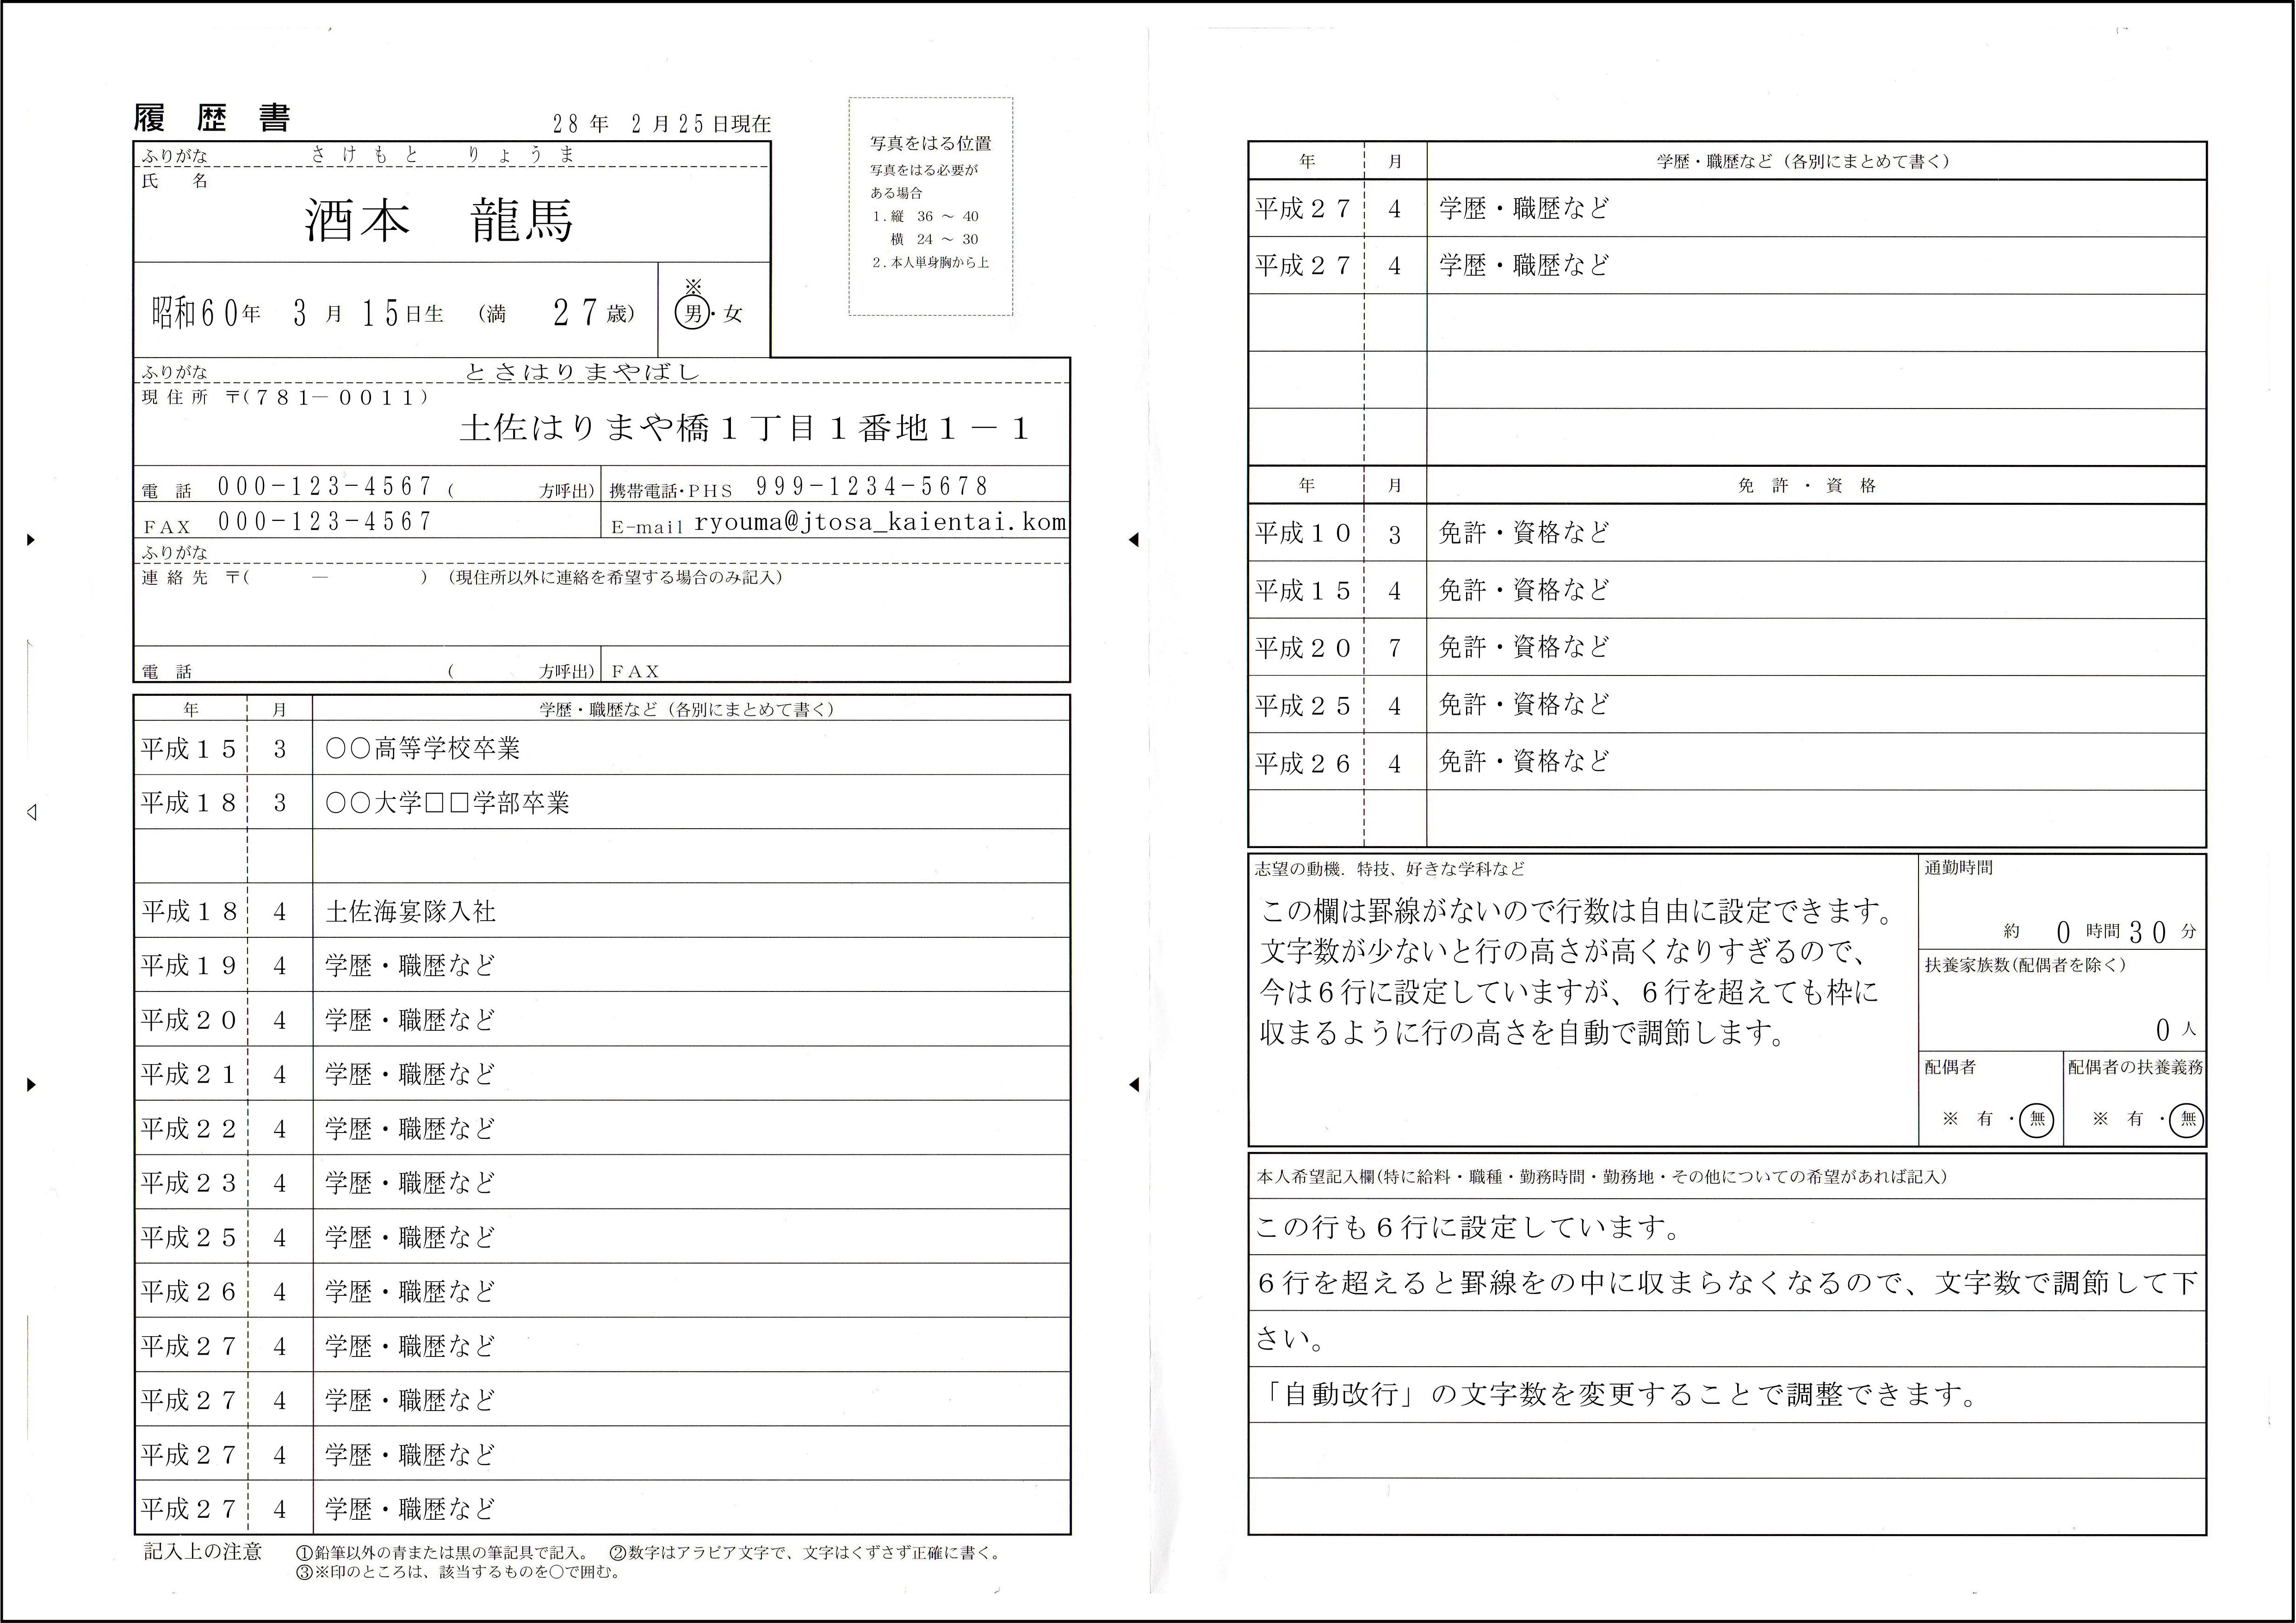 履歴書
28年 2月25日現在
ふりがな さけもと りょうま
氏名
酒本 龍馬
昭和60年 3月15日生 (満 27歳)
※
男・女
写真をはる位置
写真をはる必要が
ある場合
1.縦 36 〜 40
横 24 〜 30
2.本人単身胸から上
ふりがな とさはりまやばし
現住所 〒(781－0011)
土佐はりまや橋１丁目１番地１－１
電話 000-123-4567 ( 方呼出) 携帯電話・PHS 999-1234-5678
FAX 000-123-4567 E-mail ryouma@jtosa_kaientai.kom
ふりがな
連絡先 〒( － ) (現住所以外に連絡を希望する場合のみ記入)
電話 ( 方呼出) FAX
年 月 学歴・職歴など(各別にまとめて書く)
平成１５ 3 〇〇高等学校卒業
平成１８ 3 〇〇大学□□学部卒業
平成１８ 4 土佐海宴隊入社
平成１９ 4 学歴・職歴など
平成２０ 4 学歴・職歴など
平成２１ 4 学歴・職歴など
平成２２ 4 学歴・職歴など
平成２３ 4 学歴・職歴など
平成２５ 4 学歴・職歴など
平成２６ 4 学歴・職歴など
平成２７ 4 学歴・職歴など
平成２７ 4 学歴・職歴など
平成２７ 4 学歴・職歴など
平成２７ 4 学歴・職歴など
記入上の注意 ①鉛筆以外の青または黒の筆記具で記入。 ②数字はアラビア文字で、文字はくずさず正確に書く。
③※印のところは、該当するものを〇で囲む。
年 月 学歴・職歴など(各別にまとめて書く)
平成２７ 4 学歴・職歴など
平成２７ 4 学歴・職歴など
年 月 免許・資格
平成１０ 3 免許・資格など
平成１５ 4 免許・資格など
平成２０ 7 免許・資格など
平成２５ 4 免許・資格など
平成２６ 4 免許・資格など
志望の動機．特技、好きな学科など
この欄は罫線がないので行数は自由に設定できます。
文字数が少ないと行の高さが高くなりすぎるので、
今は６行に設定していますが、６行を超えても枠に
収まるように行の高さを自動で調節します。
通勤時間
約 0 時間 30 分
扶養家族数(配偶者を除く)
0 人
配偶者 配偶者の扶養義務
※ 有 ・ 無 ※ 有 ・ 無
本人希望記入欄(特に給料・職種・勤務時間・勤務地・その他についての希望があれば記入)
この行も６行に設定しています。
６行を超えると罫線をの中に収まらなくなるので、文字数で調節して下
さい。
「自動改行」の文字数を変更することで調整できます。